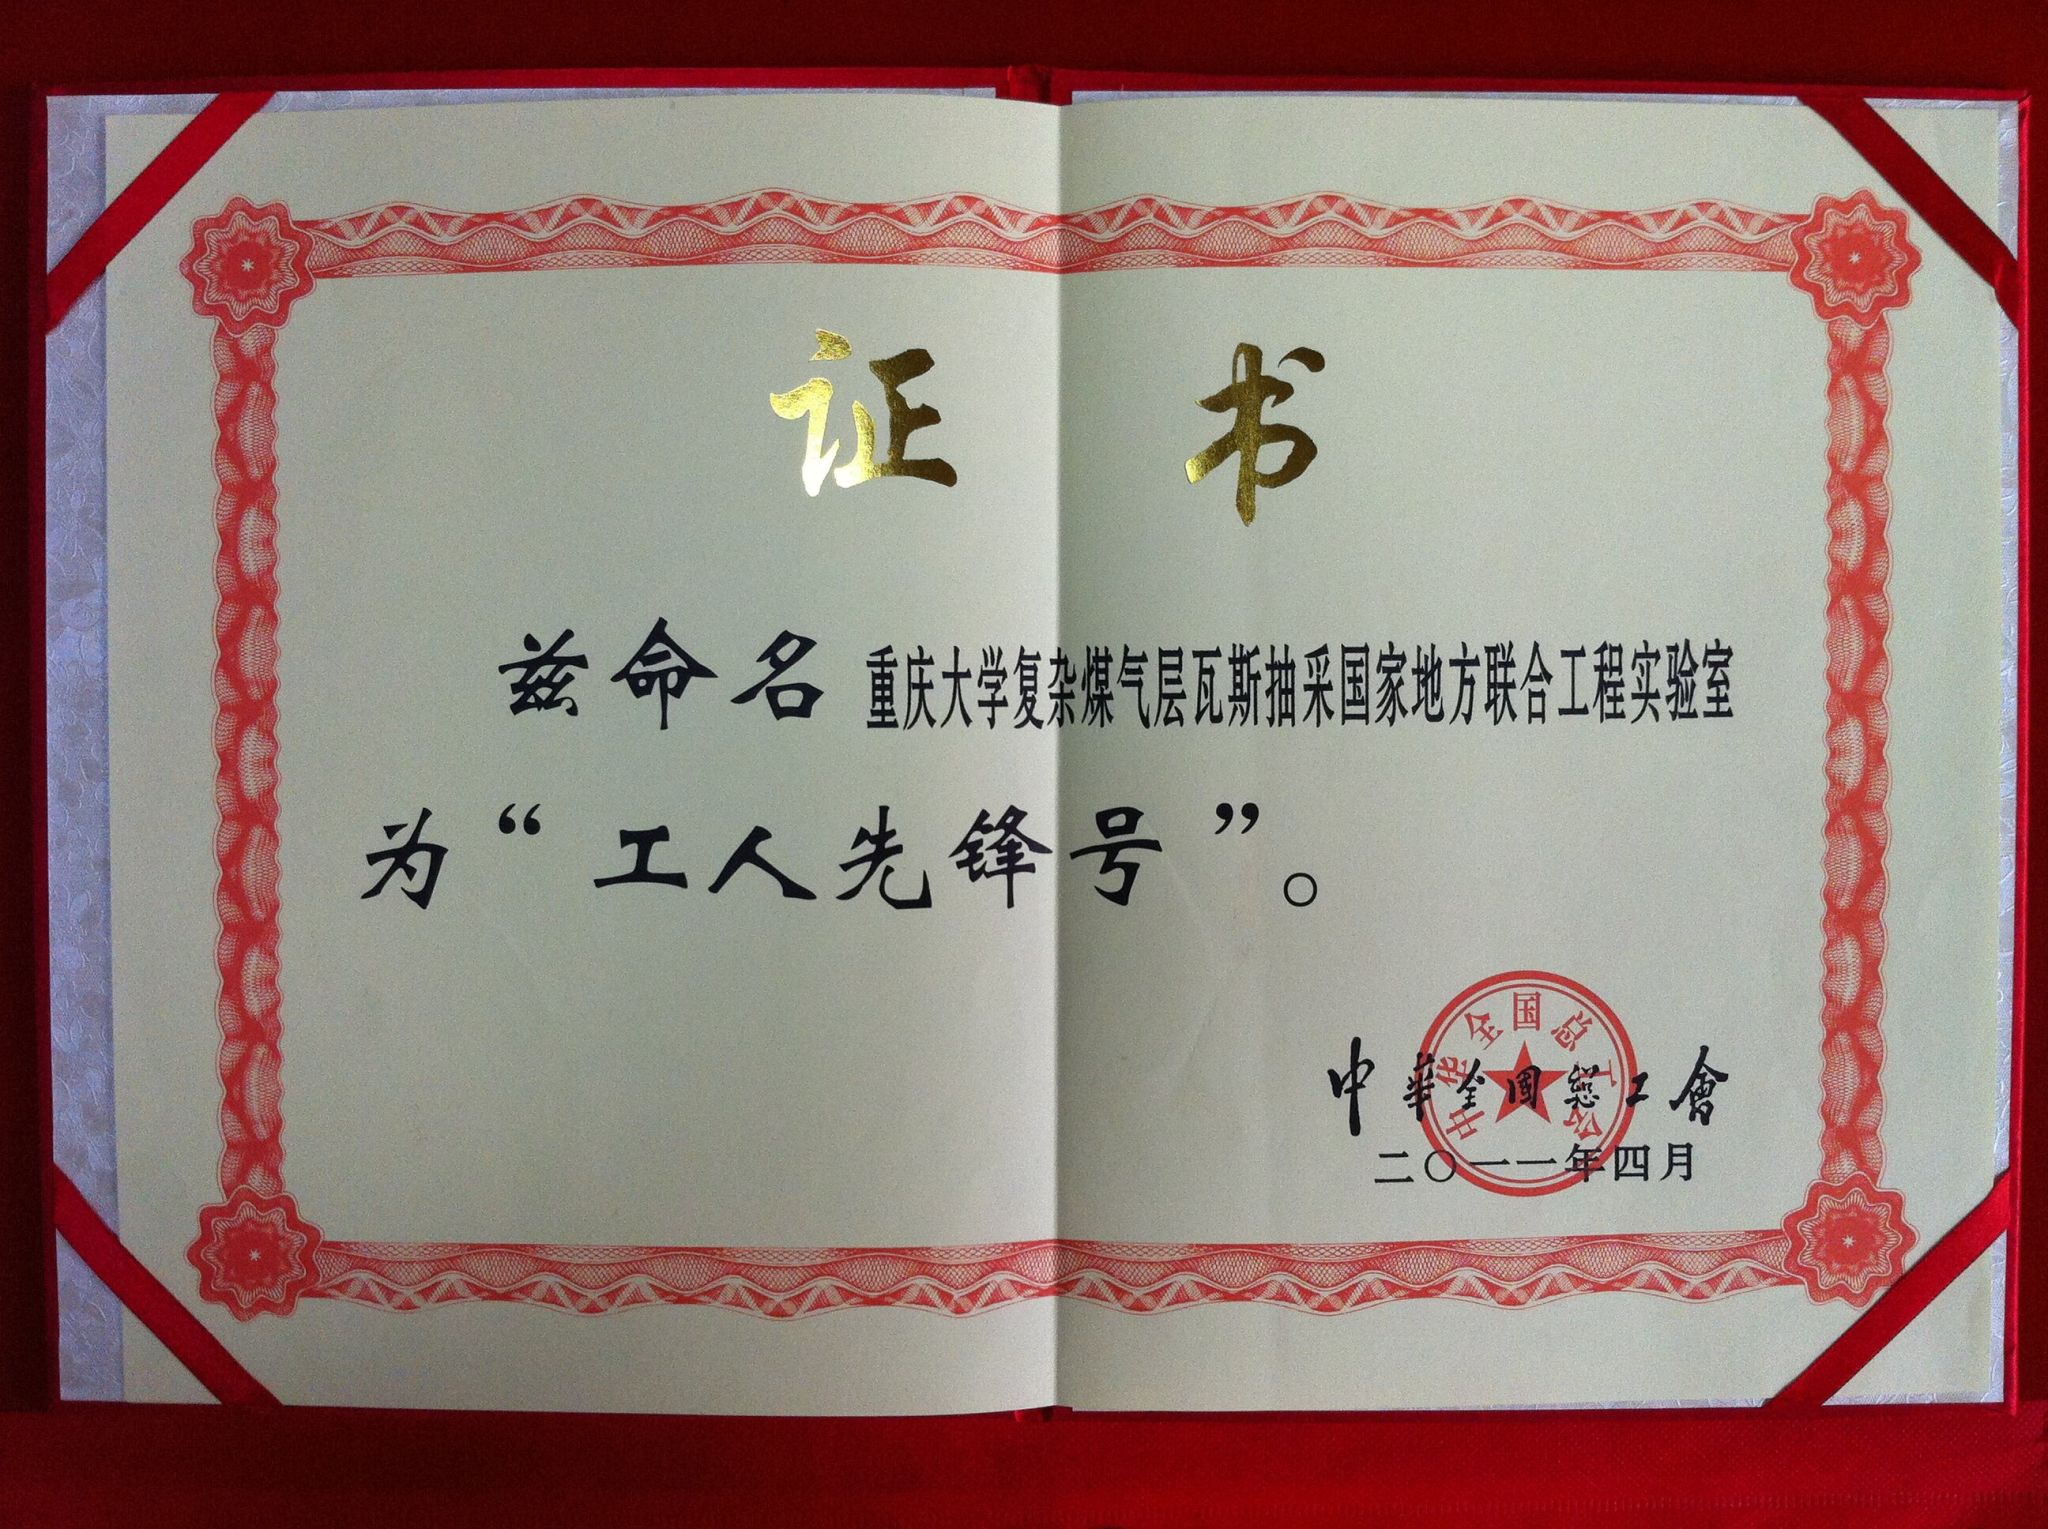 证 书
兹命名 重庆大学复杂煤气层瓦斯抽采国家地方联合工程实验室
为“工人先锋号”。
中华全国总工会
中華全國總工會
二〇一一年四月